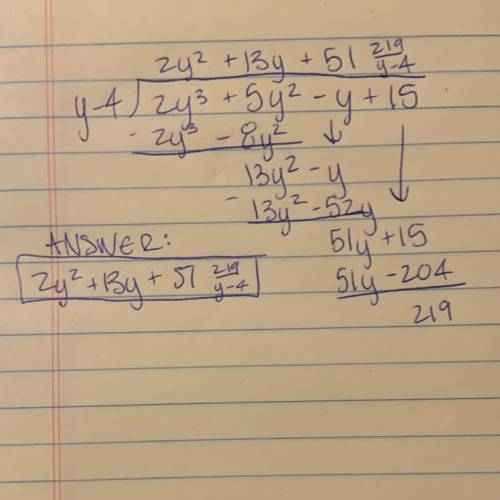 2y² + 13y + 51 219/y-4
y-4 ) 2y³ + 5y² - y + 15
- 2y³ - 8y²
13y² - y
- 13y² - 52y
51y + 15
51y - 204
219
ANSWER:
2y² + 13y + 51 219/y-4